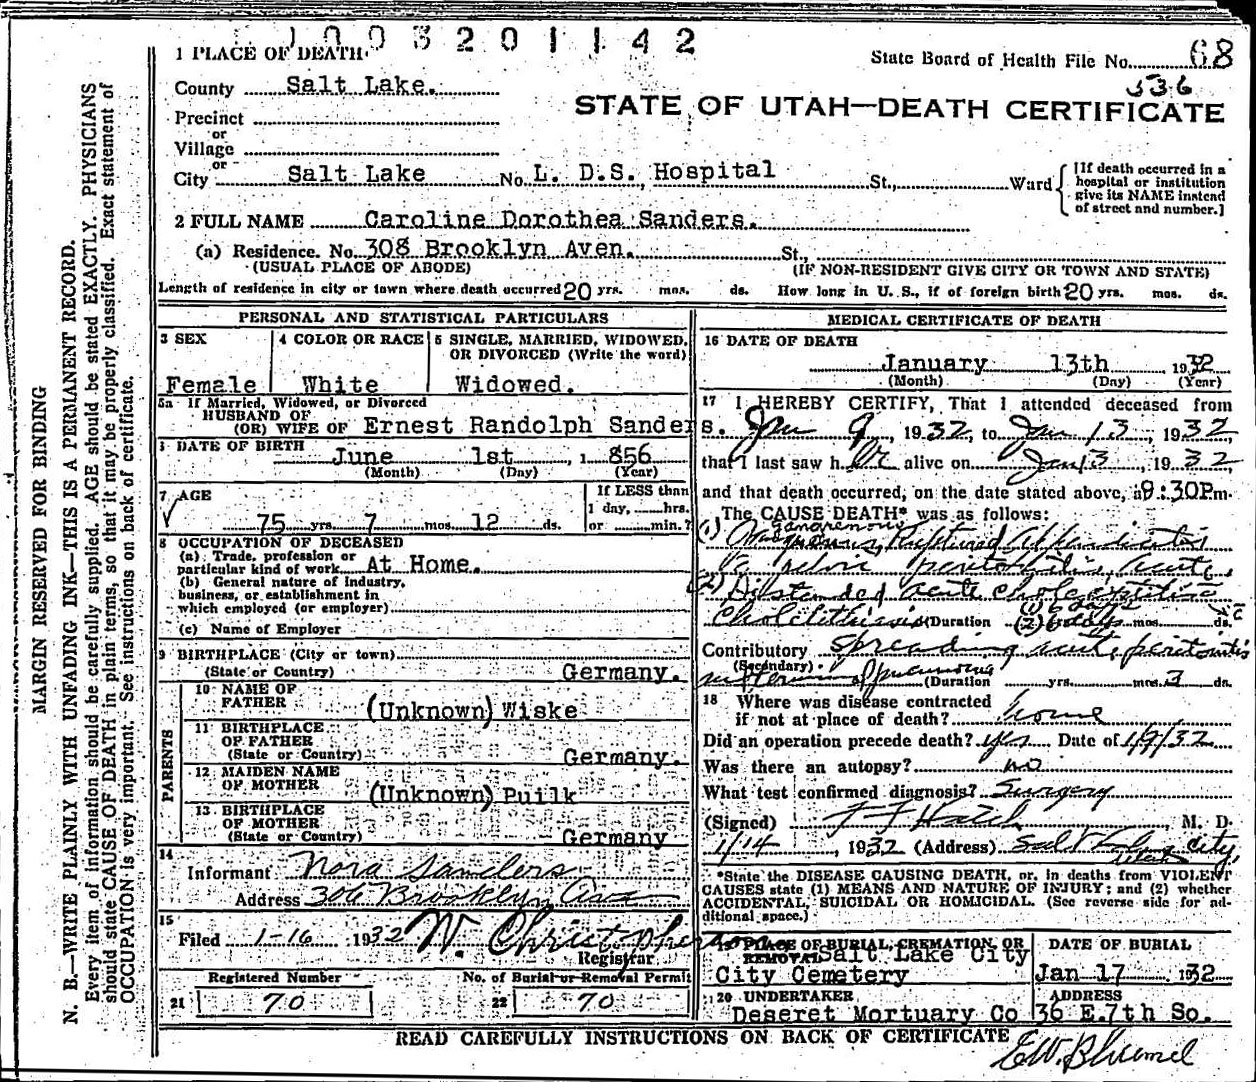 1003201142
1 PLACE OF DEATH
State Board of Health File No. 68
536
County Salt Lake.
STATE OF UTAH—DEATH CERTIFICATE
Precinct
or
Village
or
City Salt Lake No. L. D.S. Hospital St., Ward
[If death occurred in a hospital or institution give its NAME instead of street and number.]
2 FULL NAME Caroline Dorothea Sanders.
(a) Residence. No. 308 Brooklyn Aven. St.,
(USUAL PLACE OF ABODE) (IF NON-RESIDENT GIVE CITY OR TOWN AND STATE)
Length of residence in city or town where death occurred 20 yrs. mos. ds. How long in U. S., if of foreign birth 20 yrs. mos. ds.
PERSONAL AND STATISTICAL PARTICULARS
3 SEX
Female
4 COLOR OR RACE
White
5 SINGLE, MARRIED, WIDOWED, OR DIVORCED (Write the word)
Widowed.
5a If Married, Widowed, or Divorced
HUSBAND OF
(OR) WIFE OF Ernest Randolph Sanders.
DATE OF BIRTH
June 1st, 1856
(Month) (Day) (Year)
7 AGE
75 yrs. 7 mos. 12 ds.
If LESS than
1 day, hrs.
or min.?
8 OCCUPATION OF DECEASED
(a) Trade, profession or
particular kind of work At Home.
(b) General nature of industry,
business, or establishment in
which employed (or employer)
(c) Name of Employer
9 BIRTHPLACE (City or town)
(State or Country) Germany.
PARENTS
10 NAME OF
FATHER (Unknown) Wiske
11 BIRTHPLACE
OF FATHER
(State or Country) Germany.
12 MAIDEN NAME
OF MOTHER (Unknown) Puilk
13 BIRTHPLACE
OF MOTHER
(State or Country) Germany
14
Informant Nora Sanders
Address 306 Brooklyn Ave
15
Filed 1-16 1932 W. Christopherson
Registrar
Registered Number
21 70
No. of Burial or Removal Permit
22 70
MEDICAL CERTIFICATE OF DEATH
16 DATE OF DEATH
January 13th 1932
(Month) (Day) (Year)
17 I HEREBY CERTIFY, That I attended deceased from
Jan 9, 1932, to Jan 13, 1932
that I last saw her alive on Jan 13, 1932,
and that death occurred, on the date stated above, at 9:30Pm.
The CAUSE DEATH* was as follows:
(1) gangrenous Ruptured Appendicitis
peritonitis, acute,
(2) Distended acute cholecystitis
Cholelithiasis (Duration (1) 6 days (2) 6 days mos. ds.
Contributory spreading acute peritonitis
(Secondary)
pneumonia (Duration yrs. mos. 3 ds.
18 Where was disease contracted
if not at place of death? home
Did an operation precede death? yes Date of 1/9/32
Was there an autopsy? no
What test confirmed diagnosis? Surgery
(Signed) F F Hatch, M. D.
1/14, 1932 (Address) Salt Lake City, Utah
*State the DISEASE CAUSING DEATH, or, in deaths from VIOLENT
CAUSES state (1) MEANS AND NATURE OF INJURY; and (2) whether
ACCIDENTAL, SUICIDAL OR HOMICIDAL. (See reverse side for additional space.)
19 PLACE OF BURIAL, CREMATION, OR
REMOVAL Salt Lake City
City Cemetery
DATE OF BURIAL
Jan 17 1932
20 UNDERTAKER
Deseret Mortuary Co
ADDRESS
36 E.7th So.
READ CAREFULLY INSTRUCTIONS ON BACK OF CERTIFICATE
MARGIN RESERVED FOR BINDING
N. B.—WRITE PLAINLY WITH UNFADING INK—THIS IS A PERMANENT RECORD.
Every item of information should be carefully supplied. AGE should be stated EXACTLY. PHYSICIANS
should state CAUSE OF DEATH in plain terms, so that it may be properly classified. Exact statement of
OCCUPATION is very important. See instructions on back of certificate.